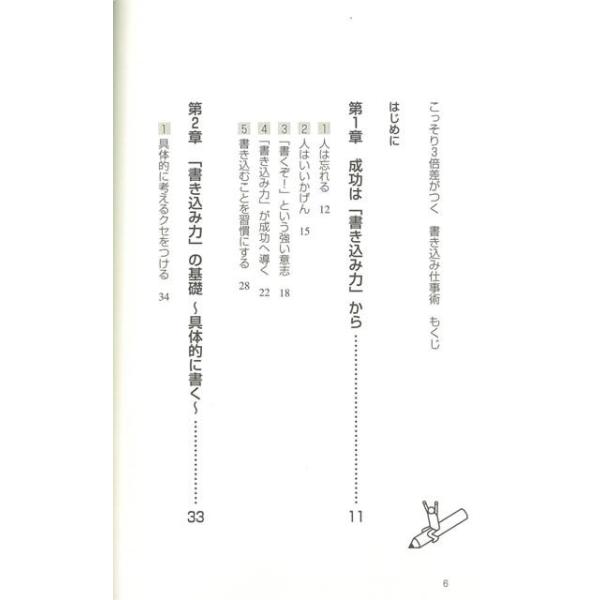 こっそり3倍差がつく 書き込み仕事術 もくじ
はじめに
第1章 成功は「書き込み力」から……………………11
1 人は忘れる 12
2 人はいいかげん 15
3 「書くぞ！」という強い意志 18
4 「書き込み力」が成功へ導く 22
5 書き込むことを習慣にする 28
第2章 「書き込み力」の基礎 〜具体的に書く〜……………33
1 具体的に考えるクセをつける 34
6